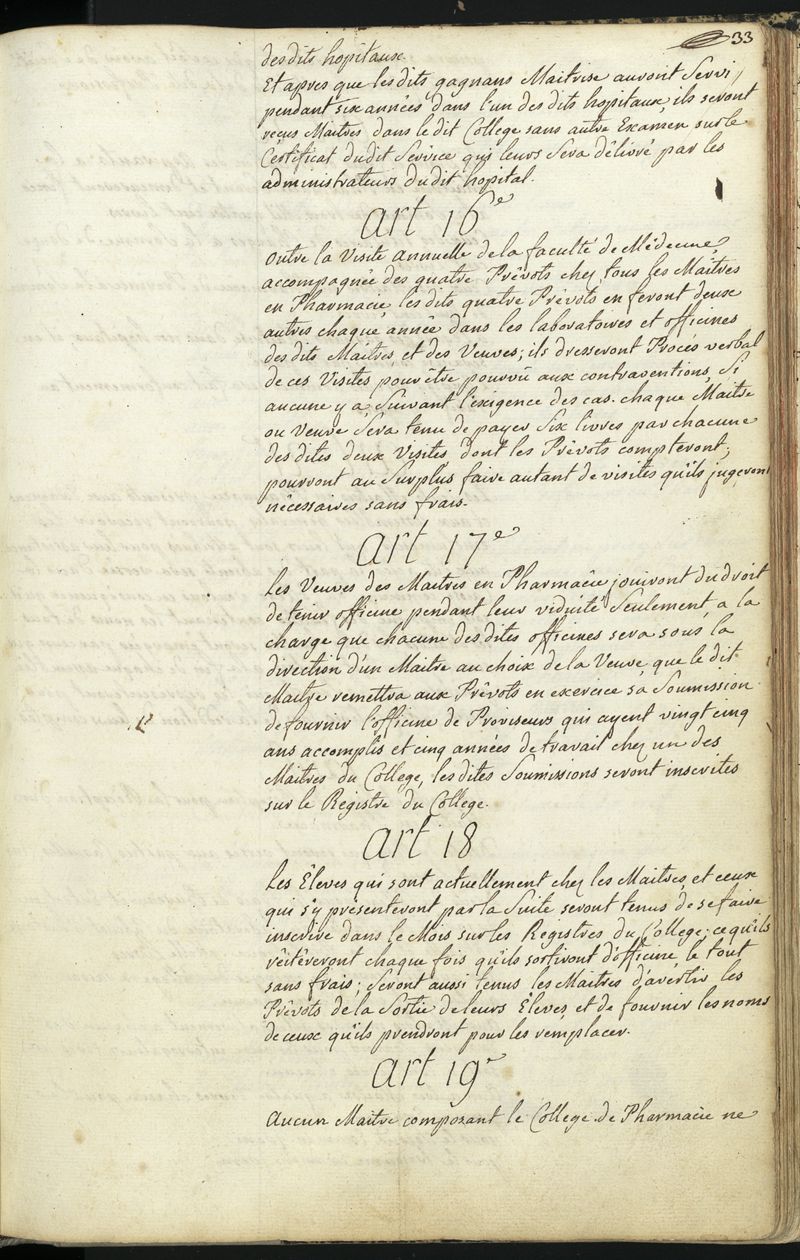 33
desdits hopitaux.
Et apres que lesdits gagnans Maitrise auront Servi,
pendant six années dans l'un des dits hopitaux, ils seront
reçus Maitres dans le dit College sans autre Examen sur le
Certificat dudit Service qui leurs Sera délivré par les
administrateurs dudit hopital.
art 16e
outre la Visite annuelle de la faculté de Médecine,
accompagnée des quatre Prévots chez tous les Maitres
en Pharmacie, les dits quatre Prévots en feront deux
autres chaque année dans les laboratoires et officines
des dits Maitres, et des Veuves; ils dresseront Procès verbal
de ces Visites pour être pourvû aux contraventions, Si
aucune y a Suivant l'exigence des cas. chaque Maitre
ou Veuve Sera tenu de payer Six livres par chacune
des dites deux Visites dont les Prévots compteront;
pourront au Surplus faire autant de visites qu'ils jugeront
nécessaires sans frais.
art 17e
Les Veuves des Maitres en Pharmacie jouiront du droit
de tenir officine pendant leur viduité Seulement, a la
charge que chacune des dites officines sera sous la
direction d'un Maitre au choix de la Veuve, que le dit
Maitre remettra aux Prévots en exercice sa Soumission
de fournir l'officine de Proviseurs qui ayent vingt cinq
ans accomplis et cinq années de travail chez un des
Maitres du College, les dites Soumissions seront inscrites
sur le Registre du College.
art 18
Les Éleves qui sont actuellement chez les Maitres, et ceux
qui s'y présenteront par la Suite seront tenus de se faire
inscrire dans le Mois sur les Registres du College; ce qu'ils
réitéreront chaque fois qu'ils sortiront d'officine, le tout
sans frais; Seront aussi tenus les Maitres d'avertir les
Prévots de la Sortie de leurs Éleves, et de fournir les noms
de ceux qu'ils prendront pour les remplacer.
art 19e
Aucun Maitre composant le College de Pharmacie ne